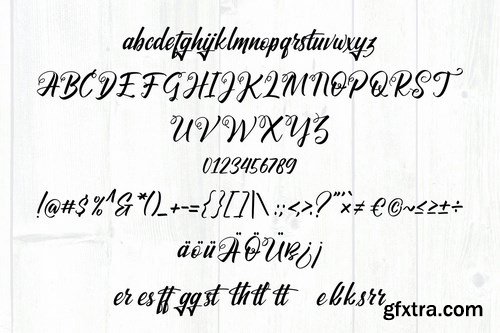 abcdefghijklmnopqrstuvwxyz
ABCDEFGHIJKLMNOPQRST
UVWXYZ
0123456789
!@#$%^&*()_+-={}[]|\:;<>.?"'`×≠€©~≤≥±÷
äöüÄÖÜß¿¡
er es ff gg st th tt tt eb ks rr
gfxtra.com